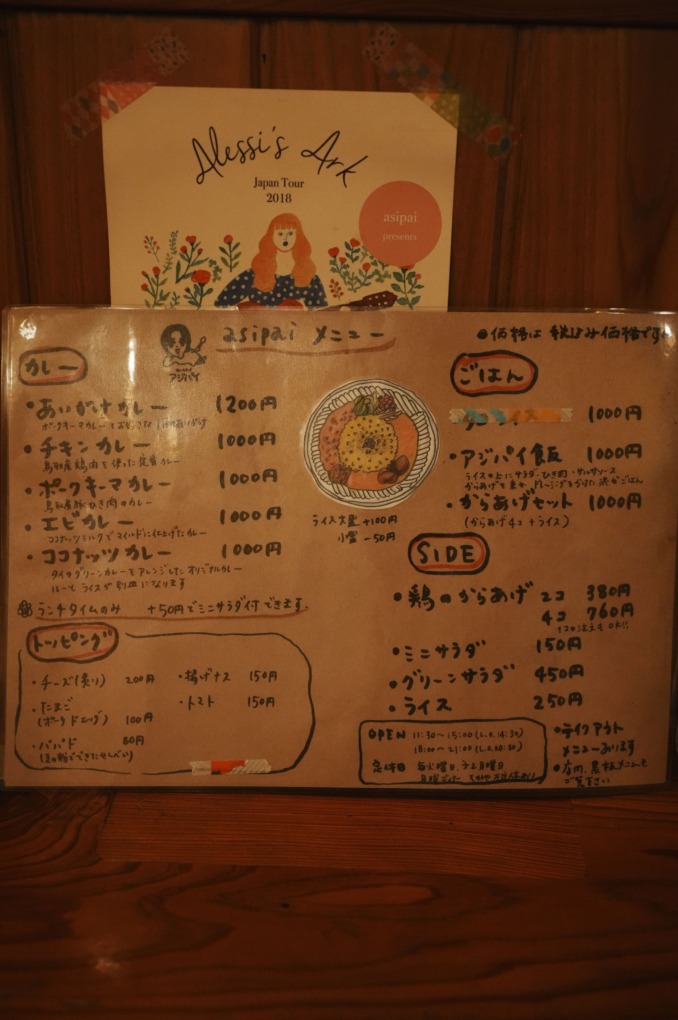 Alessi's Ark
Japan Tour
2018
asipai
presents
asipai メニュー
アジパイ
●価格は 税込み価格です。
カレー
・あいがけカレー 1200円
・チキンカレー 1000円
鳥取産鶏肉を使った定番カレー
・ポークキーマカレー 1000円
鳥取産豚ひき肉のカレー
・エビカレー 1000円
ココナッツミルクでマイルドに仕上げたカレー
・ココナッツカレー 1000円
タイのグリーンカレーをアレンジしたオリジナルカレー
ルーとライスが別皿になります
ランチタイムのみ +50円でミニサラダ付できます。
ライス大盛 +100円
小盛 -50円
トッピング
・チーズ(炙り) 200円
・たまご 100円
・パパド 80円
(豆の粉でできたせんべい)
・揚げナス 150円
・トマト 150円
ごはん
1000円
・アジパイ飯 1000円
ライスの上にサラダ・ひき肉・サルサソース
・からあげセット 1000円
(からあげ4コ + ライス)
SIDE
・鶏のからあげ 2コ 380円
4コ 760円
・ミニサラダ 150円
・グリーンサラダ 450円
・ライス 250円
OPEN 11:30〜15:00(L.O.14:30)
18:00〜21:00(L.O.20:30)
定休日 毎火曜日、
・テイクアウト
メニューあります
・店内、黒板メニューも
ご覧下さい